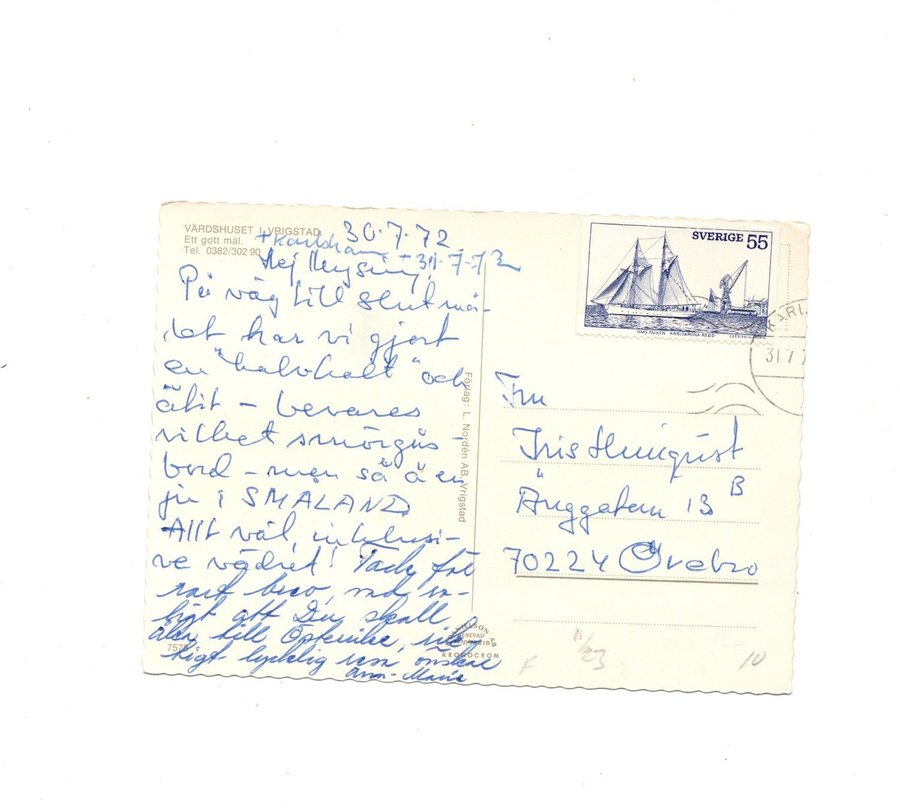 VÄRDSHUSET I VRIGSTAD
Ett gott mål.
Tel. 0382/302 90
30.7.72
+ Karlshamn 31.7.72
Hej
På väg till slutmå-
let har vi gjort
en "halvhalt" och
ätit – bevares
vilket smörgås-
bord – men så ä en
ju i SMÅLAND
Allt väl, inklusi-
ve vädret! Tack för
rart brev, med
att Du skall
till Österrike,
tigt lycklig resa önskar
Ann-Marie
7575
Förlag: L. Nordén AB, Vrigstad
KRONOCROM
SVERIGE 55
HMS FALKEN KARLSKRONA REDD
KARL
31.7.7
Fru
Iris
Änggatan 13 B
70224 Örebro
F
11/23
10